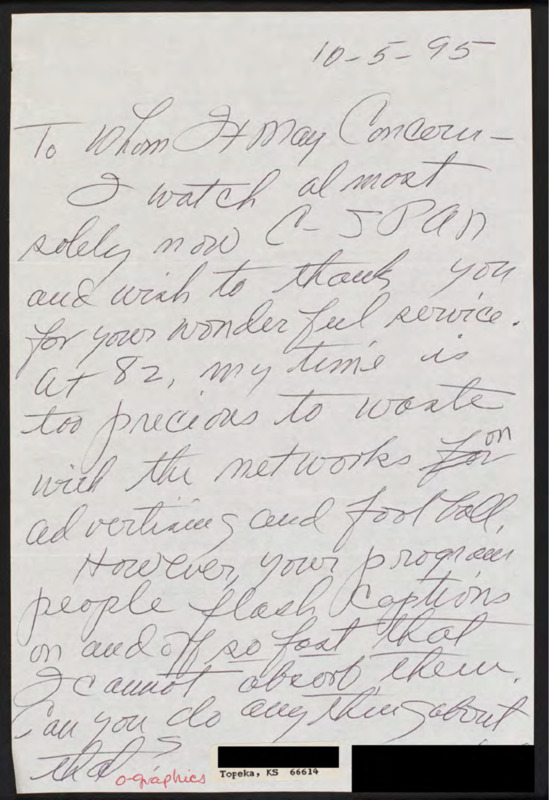 10-5-95
To Whom It May Concern-
I watch almost
solely now C-SPAN
and wish to thank you
for your wonderful service.
At 82, my time is
too precious to waste
with the networks for on
advertising and football.
However, your program
people flash captions
on and off so fast that
I cannot absorb them.
Can you do anything about
that?
o-graphics
Topeka, KS 66614